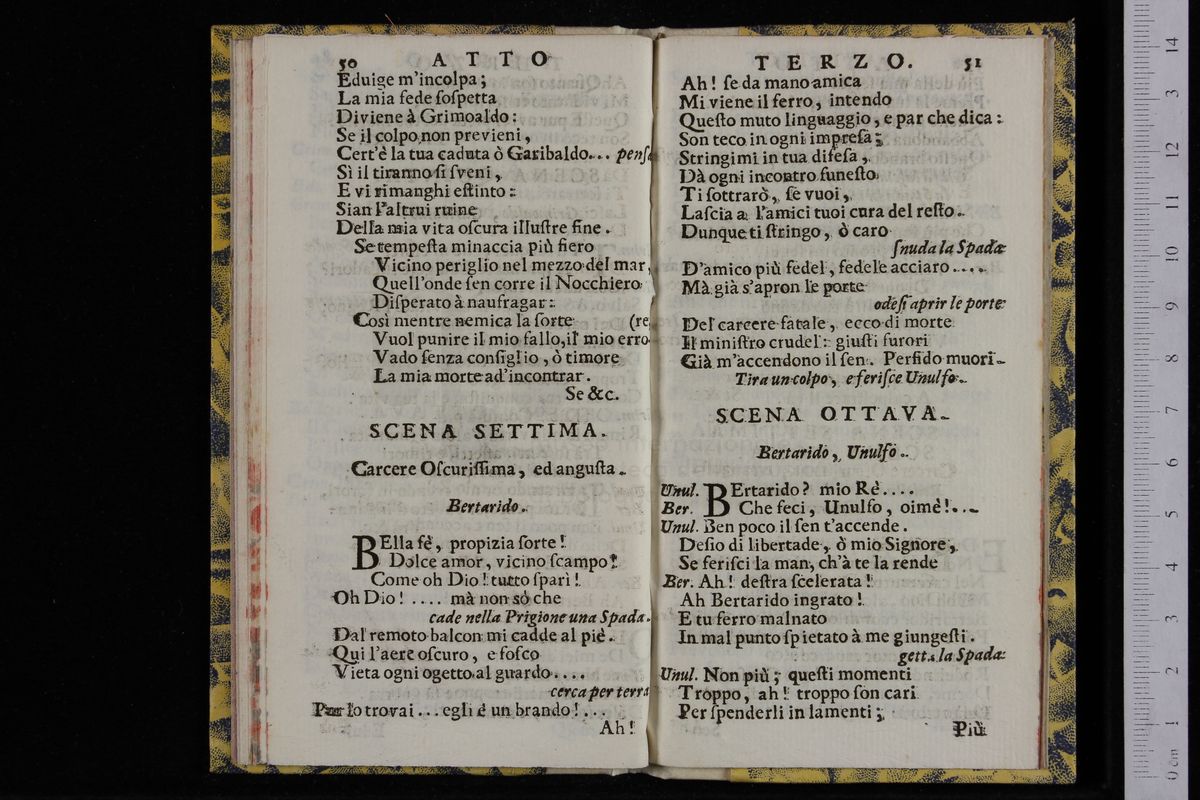 50 ATTO
Eduige m'incolpa;
La mia fede ſoſpetta
Diviene à Grimoaldo:
Se il colpo non previeni,
Cert'è la tua caduta ò Garibaldo... penſa
Sì il tiranno ſi ſveni,
E vi rimanghi eſtinto:
Sian l'altrui ruine
Della mia vita oſcura illuſtre fine.
Se tempeſta minaccia più fiero
Vicino periglio nel mezzo del mar,
Quell'onde ſen corre il Nocchiero
Diſperato à naufragar:
Così mentre nemica la ſorte (re
Vuol punire il mio fallo, il mio erro
Vado ſenza conſiglio, ò timore
La mia morte ad'incontrar.
Se &c.
SCENA SETTIMA.
Carcere Oſcuriſſima, ed anguſta.
Bertarido.
BElla fè, propizia ſorte!
Dolce amor, vicino ſcampo!
Come oh Dio! tutto ſparì!
Oh Dio! .... mà non sò che
cade nella Prigione una Spada.
Dal remoto balcon mi cadde al piè.
Qui l'aere oſcuro, e foſco
Vieta ogni ogetto al guardo....
cerca per terra
Pur lo trovai... egli è un brando!...
Ah!
TERZO. 51
Ah! ſe da mano amica
Mi viene il ferro, intendo
Queſto muto linguaggio, e par che dica:
Son teco in ogni impreſa;
Stringimi in tua difeſa,
Dà ogni incontro funeſto
Ti ſottrarò, ſe vuoi,
Laſcia a l'amici tuoi cura del reſto.
Dunque ti ſtringo, ò caro
ſnuda la Spada
D'amico più fedel, fedele acciaro....
Mà già s'apron le porte
odeſi aprir le porte
Del carcere fatale, ecco di morte
Il miniſtro crudel: giuſti furori
Già m'accendono il ſen. Perfido muori.
Tira un colpo, e feriſce Unulfo.
SCENA OTTAVA.
Bertarido, Unulfo.
Unul. BErtarido? mio Rè....
Ber. Che feci, Unulfo, oimè!...
Unul. Ben poco il ſen t'accende.
Deſio di libertade, ò mio Signore,
Se feriſci la man, ch'à te la rende
Ber. Ah! deſtra ſcelerata!
Ah Bertarido ingrato!
E tu ferro malnato
In mal punto ſpietato à me giungeſti.
getta la Spada
Unul. Non più; queſti momenti
Troppo, ah! troppo ſon cari
Per ſpenderli in lamenti;
Più
14
13
12
11
10
9
8
7
6
5
4
3
2
1
0 cm